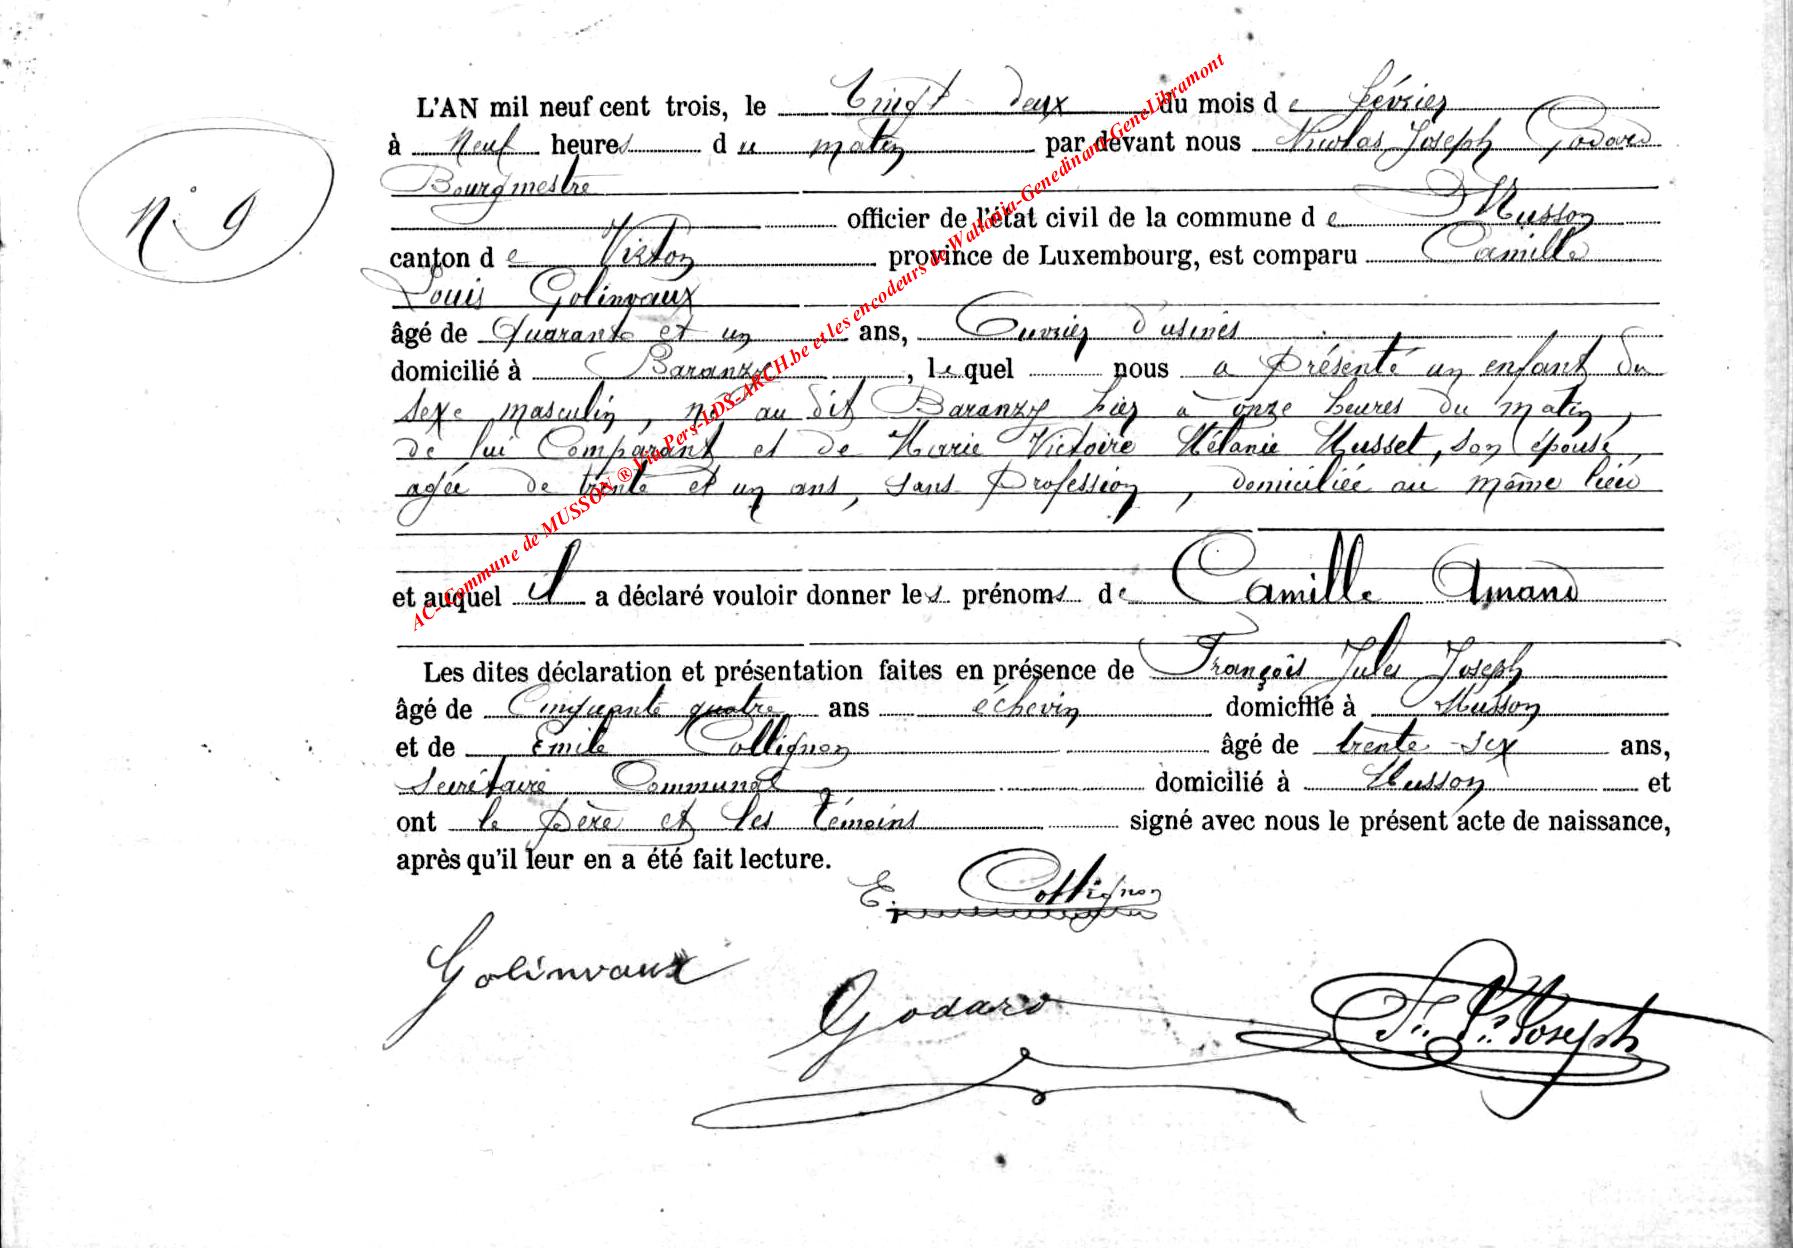 L'AN mil neuf cent trois, le Vingt deux du mois de février
N° 9
à Neuf heures du matin par devant nous Nicolas Joseph Godard
Bourgmestre
officier de l'état civil de la commune de Musson
canton de Virton province de Luxembourg, est comparu Camille
Louis Golinvaux
âgé de Quarante et un ans, Ouvrier d'usines
domicilié à Baranzy, lequel nous a présenté un enfant du
sexe masculin, né au dit Baranzy hier à onze heures du matin,
de lui Comparant et de Marie Victoire Mélanie Musset, son épouse,
agée de trente et un ans, sans Profession, domiciliée au même lieu
et auquel il a déclaré vouloir donner les prénoms de Camille Amand
Les dites déclaration et présentation faites en présence de François Jules Joseph
âgé de Cinquante quatre ans échevin domicilié à Musson
et de Emile Collignon âgé de trente-six ans,
secrétaire Communal domicilié à Musson et
ont le père et les témoins signé avec nous le présent acte de naissance,
après qu'il leur en a été fait lecture.
E. Collignon
Golinvaux
Godard
Joseph
AC-Commune de MUSSON ® Via Pers-LDS-ARCH.be et les encodeurs de Wallonia-Genedinant-GeneLibramont